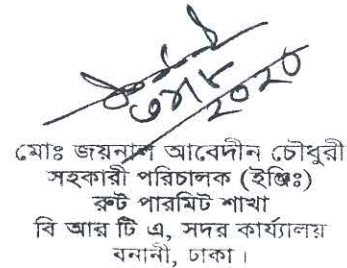 ২০২০
মোঃ জয়নাল আবেদীন চৌধুরী
সহকারী পরিচালক (ইঞ্জিঃ)
রুট পারমিট শাখা
বি আর টি এ, সদর কার্য্যালয়
বনানী, ঢাকা।